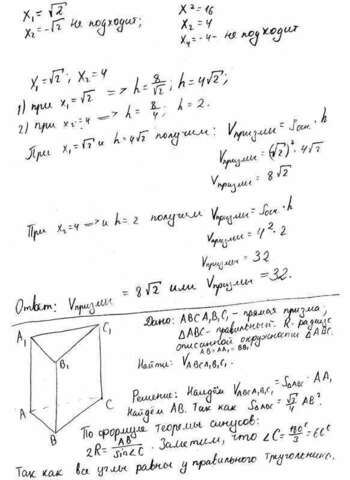 x₁ = √2
x₂ = -√2 не подходит;
x² = 16
x₂ = 4
x₄ = -4 - не подходит
x₁ = √2; x₂ = 4
1) при x₁ = √2 => h = 8/√2; h = 4√2;
2) при x₂ = 4 => h = 8/4; h = 2.
При x₁ = √2 и h = 4√2 получим: Vпризмы = Sосн · h
Vпризмы = (√2)² · 4√2
Vпризмы = 8√2
При x₂ = 4 => и h = 2 получим Vпризмы = Sосн · h
Vпризмы = 4² · 2
Vпризмы = 32
Ответ: Vпризмы = 8√2 или Vпризмы = 32.
Дано: ABCA₁B₁C₁ - прямая призма,
ΔABC - правильный. R - радиус
описанной окружности ΔABC.
AB = AA₁ = BB₁
Найти: VABCA₁B₁C₁
A₁
C₁
B₁
A
C
B
Решение: Найдём VABCA₁B₁C₁ = SΔABC · AA₁
Найдём AB. Так как SΔABC = √3/4 AB².
По формуле теоремы синусов:
2R = AB/Sin∠C. Заметим, что ∠C = 180°/3 = 60°
Так как все углы равны у правильного треугольника.